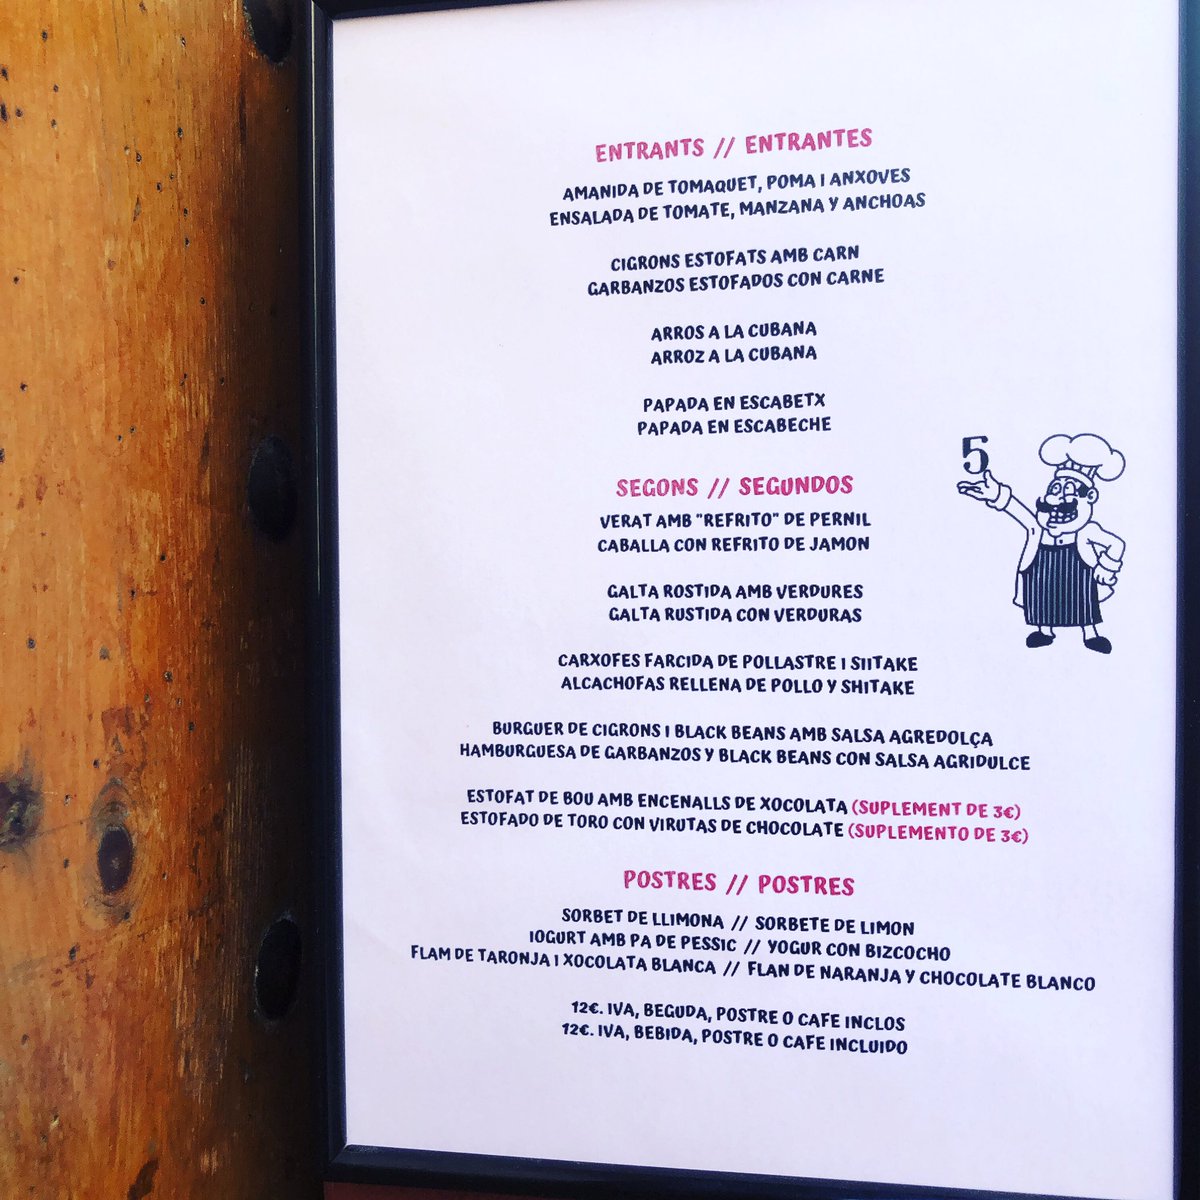 ENTRANTS // ENTRANTES
AMANIDA DE TOMAQUET, POMA I ANXOVES
ENSALADA DE TOMATE, MANZANA Y ANCHOAS
CIGRONS ESTOFATS AMB CARN
GARBANZOS ESTOFADOS CON CARNE
ARROS A LA CUBANA
ARROZ A LA CUBANA
PAPADA EN ESCABETX
PAPADA EN ESCABECHE
5
SEGONS // SEGUNDOS
VERAT AMB "REFRITO" DE PERNIL
CABALLA CON REFRITO DE JAMON
GALTA ROSTIDA AMB VERDURES
GALTA RUSTIDA CON VERDURAS
CARXOFES FARCIDA DE POLLASTRE I SIITAKE
ALCACHOFAS RELLENA DE POLLO Y SHITAKE
BURGUER DE CIGRONS I BLACK BEANS AMB SALSA AGREDOLÇA
HAMBURGUESA DE GARBANZOS Y BLACK BEANS CON SALSA AGRIDULCE
ESTOFAT DE BOU AMB ENCENALLS DE XOCOLATA (SUPLEMENT DE 3€)
ESTOFADO DE TORO CON VIRUTAS DE CHOCOLATE (SUPLEMENTO DE 3€)
POSTRES // POSTRES
SORBET DE LLIMONA // SORBETE DE LIMON
IOGURT AMB PA DE PESSIC // YOGUR CON BIZCOCHO
FLAM DE TARONJA I XOCOLATA BLANCA // FLAN DE NARANJA Y CHOCOLATE BLANCO
12€. IVA, BEGUDA, POSTRE O CAFE INCLOS
12€. IVA, BEBIDA, POSTRE O CAFE INCLUIDO